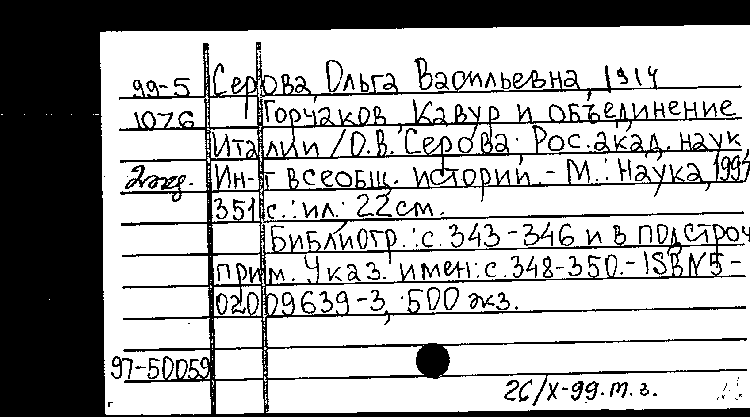 99-5 Серова, Ольга Васильевна, 1914
1076 Горчаков, Кавур и объединение
Италии / О.В. Серова; Рос. акад. наук,
2экз. Ин-т всеобщ. истории. - М.: Наука, 1997
351 с.: ил.; 22см.
Библиогр.: с. 343-346 и в подстроч
прим. Указ. имен: с 348-350. - ISBN5-
02009639-3, 500 экз.
97-50059
26/X-99.т.г.